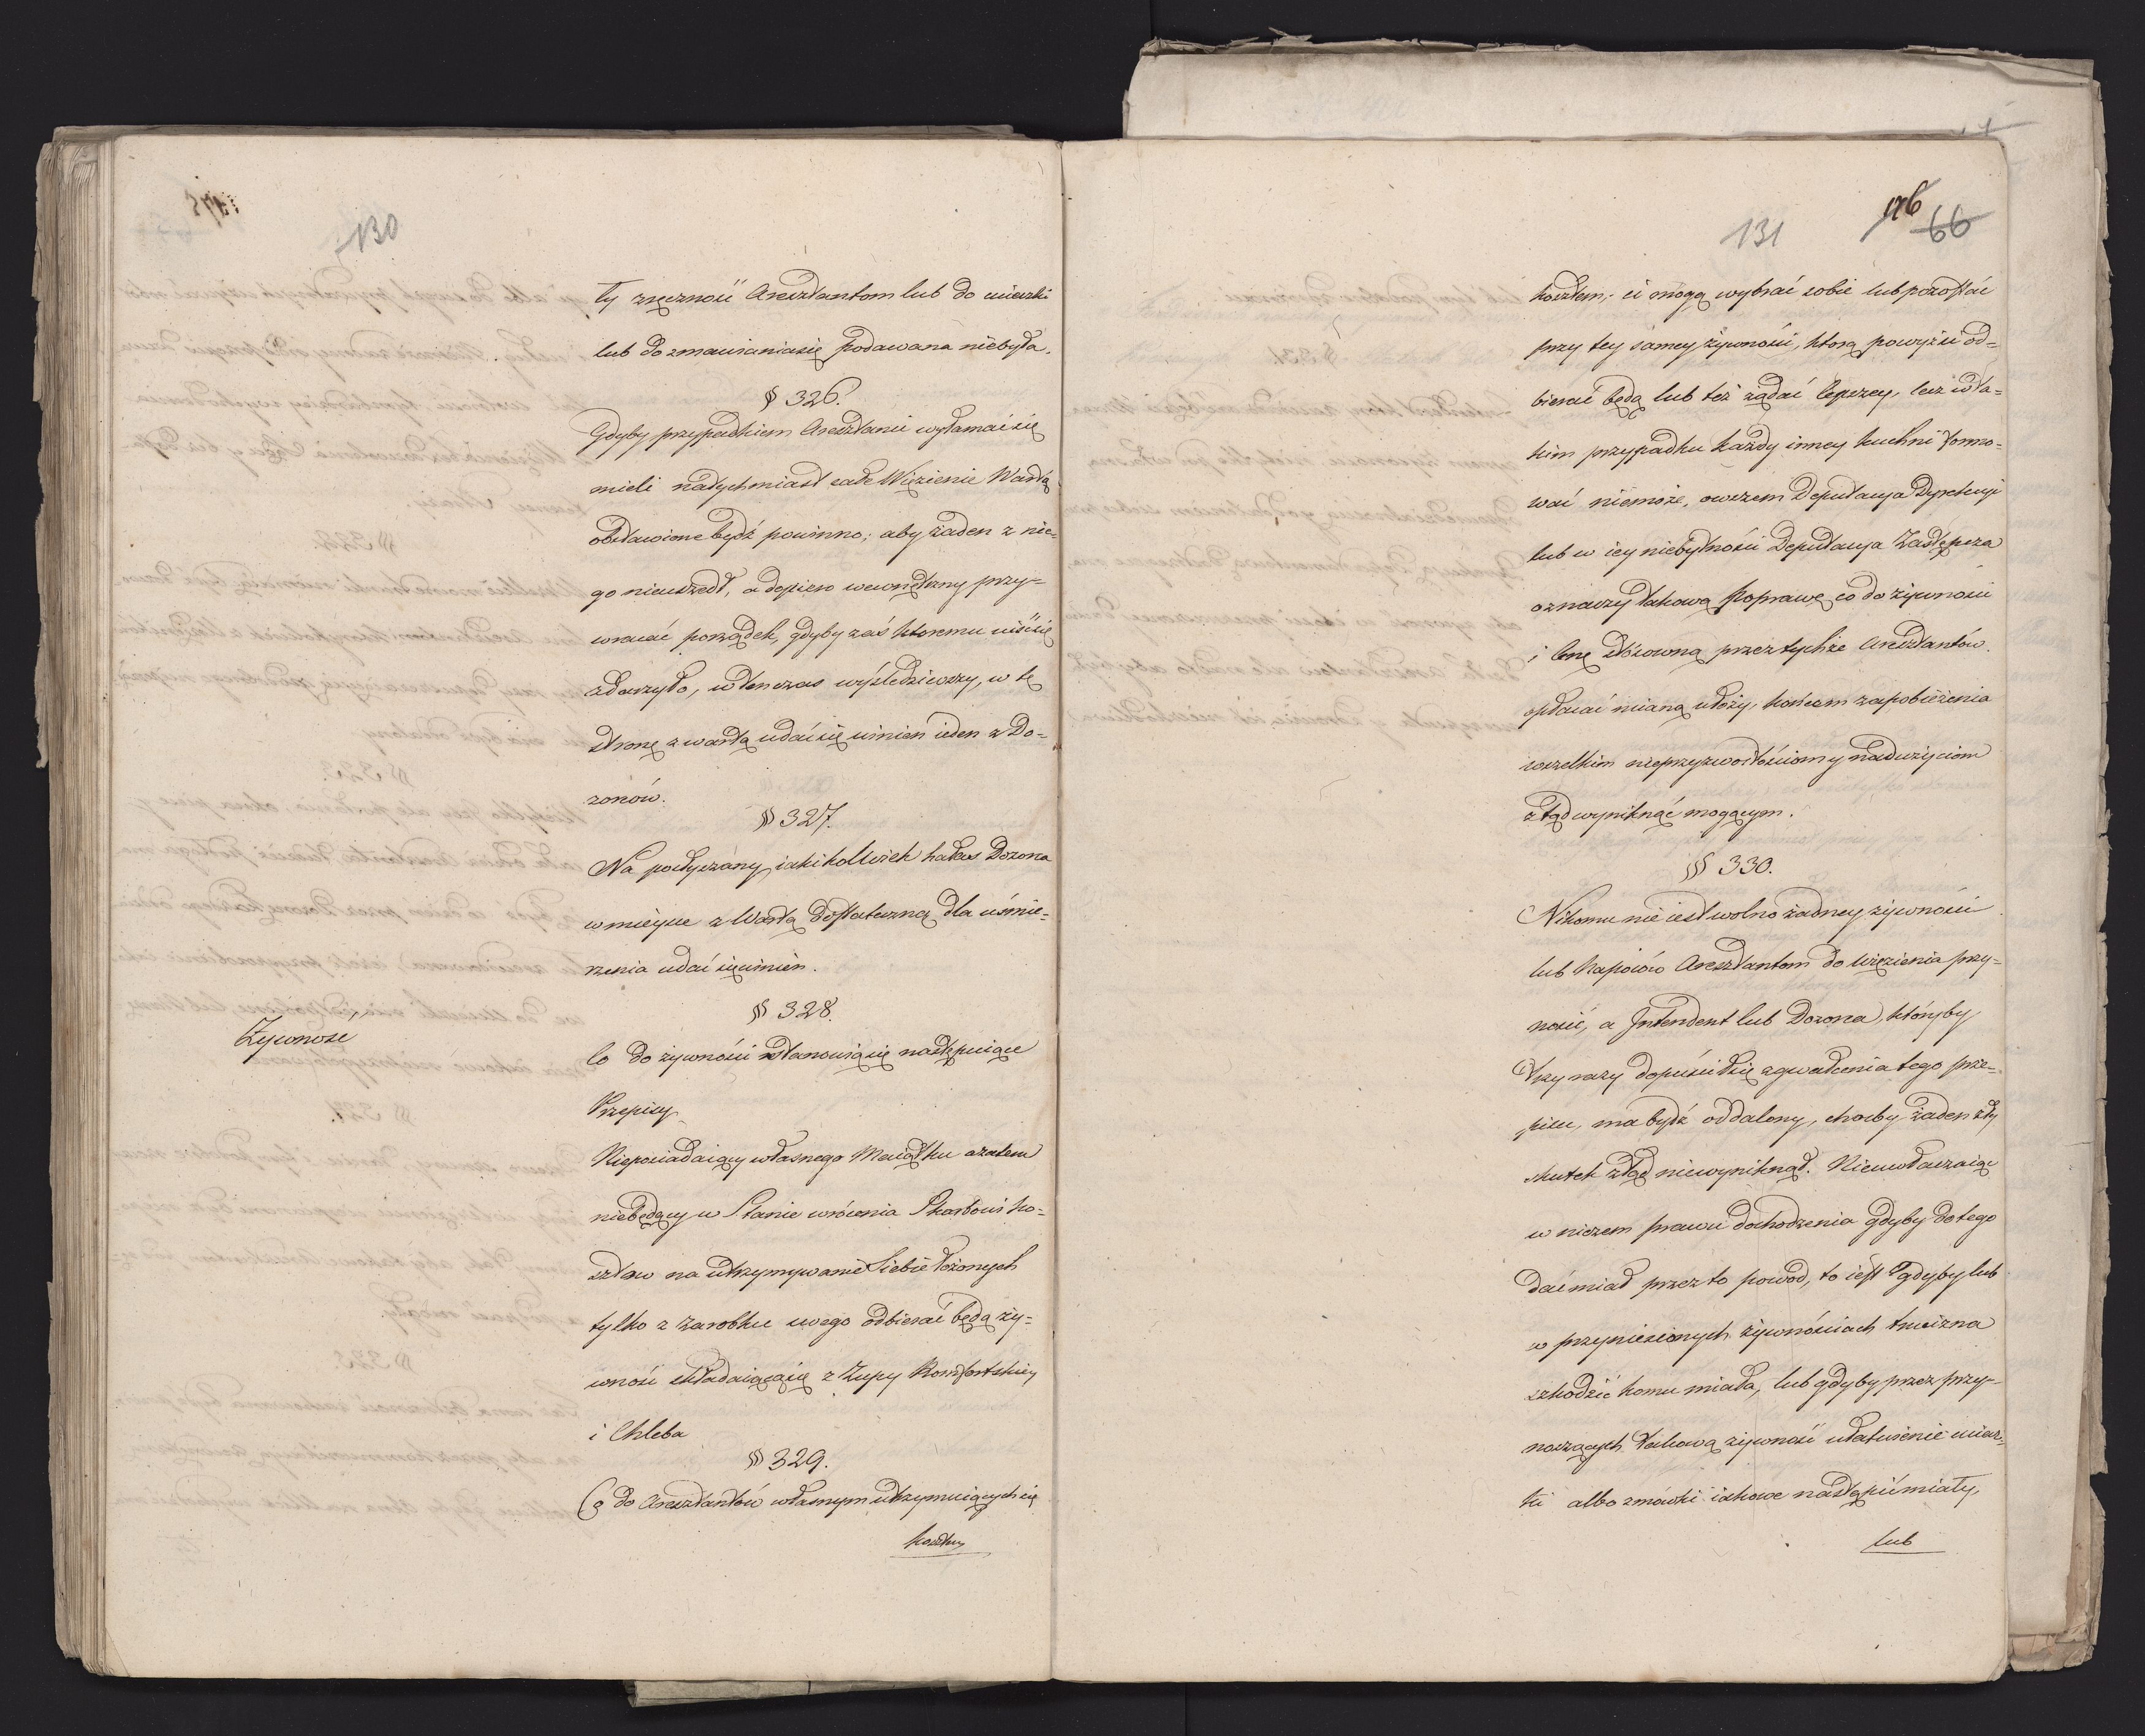 130
ty zręczność Aresztantom lub do ucieczki
lub do zmawianiasię podawana niebyła.
§ 326.
Gdyby przypadkiem Aresztanci wyłamać się
mieli natychmiast całe Więzienie Wartą
obstawione bydź powinno; aby żaden z nie-
go nieuszedł, a dopiero wewnętrzny przy-
wracać porządek, gdyby zaś ktoremu uiśćsię
zdarzyło, wtenczas wyśledziwszy, w tę
stronę z wartą udać się winien ieden z Do-
zorców.
§ 327.
Na posłyszany iakikolwiek hałas Dozorca
w mieysce z Wartą dostateczną dla uśmie-
rzenia udać sięwinien.
§ 328.
Żywność
Co do żywności stanowiąsię następuiące
Przepisy
Nieposiadaiący własnego Maiątku azatem
niebędący w Stanie wrócenia Skarbowi ko-
sztow na utrzymywanie Siebie łożonych
tylko z zarobku swego odbierać będą ży-
wność składaiącąsię z Zupy Romfortskiey
i Chleba
§ 329.
Co do Aresztantów własnym utrzymuiących się
kosztem
131
126
66
kosztem; ci mogą wybrać sobie lub pozostać
przy tey samey żywności, ktorą powyżsi od-
bierać będą lub też żądać lepszey, lecz wta-
kim przypadku każdy inney kuchni formo-
wać niemoże, owszem Deputacya Dyrekcyi
lub w iey niebytności Deputacya Zastępcza
oznaczy takową poprawę co do żywności
i Cenę stósowną przez tychże Aresztantów
opłacać mianą ułoży, końcem zapobieżenia
wszelkim nieprzyzwoitościom y nadużyciom
ztąd wyniknąć mogącym.
§ 330.
Nikomu nie iest wolno żadney żywności
lub Napoiów Aresztantom do więzienia przy-
nosić, a Jntendent lub Dozorca, któryby
trzy razy dopuścił się zgwałcenia tego prze-
pisu, ma bydź oddalony, choćby żaden zły
skutek ztąd niewyniknął. Nieuwłaczaiąc
w niczem prawu dochodzenia gdyby do tego
dać miał przez to powod, to iest gdyby lub
w przyniesionych żywnościach trucizna
szkodzić komu miała, lub gdyby przez przy-
noszących takową żywność ułatwienie uciecz-
ki albo zmówki iakowe nastąpić miały,
lub